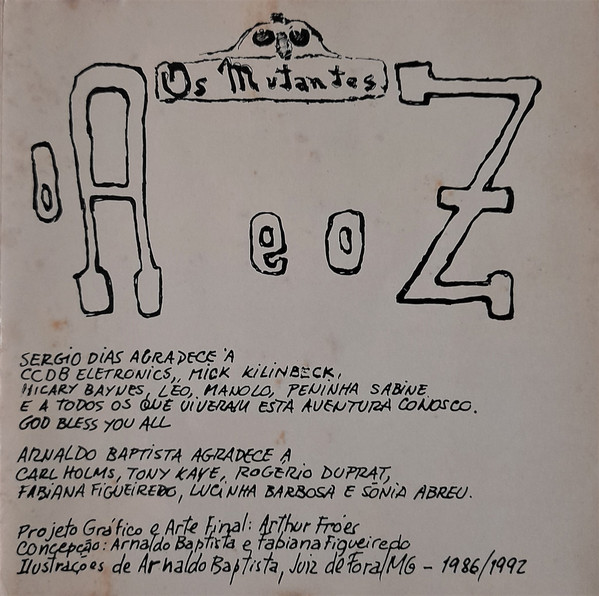 Os Mutantes
O A e o Z
SERGIO DIAS AGRADECE À
CCDB ELETRONICS, MICK KILINBECK,
HICARY BAYNES, LEO, MANOLO, PENINHA SABINE
E A TODOS OS QUE VIVERAM ESTA AVENTURA CONOSCO.
GOD BLESS YOU ALL
ARNALDO BAPTISTA AGRADECE A
CARL HOLMS, TONY KAYE, ROGERIO DUPRAT,
FABIANA FIGUEIREDO, LUCINHA BARBOSA E SONIA ABREU.
Projeto Gráfico e Arte Final: Arthur Fróes
Concepção: Arnaldo Baptista e Fabiana Figueiredo
Ilustrações de Arnaldo Baptista, Juiz de Fora/MG - 1986/1992